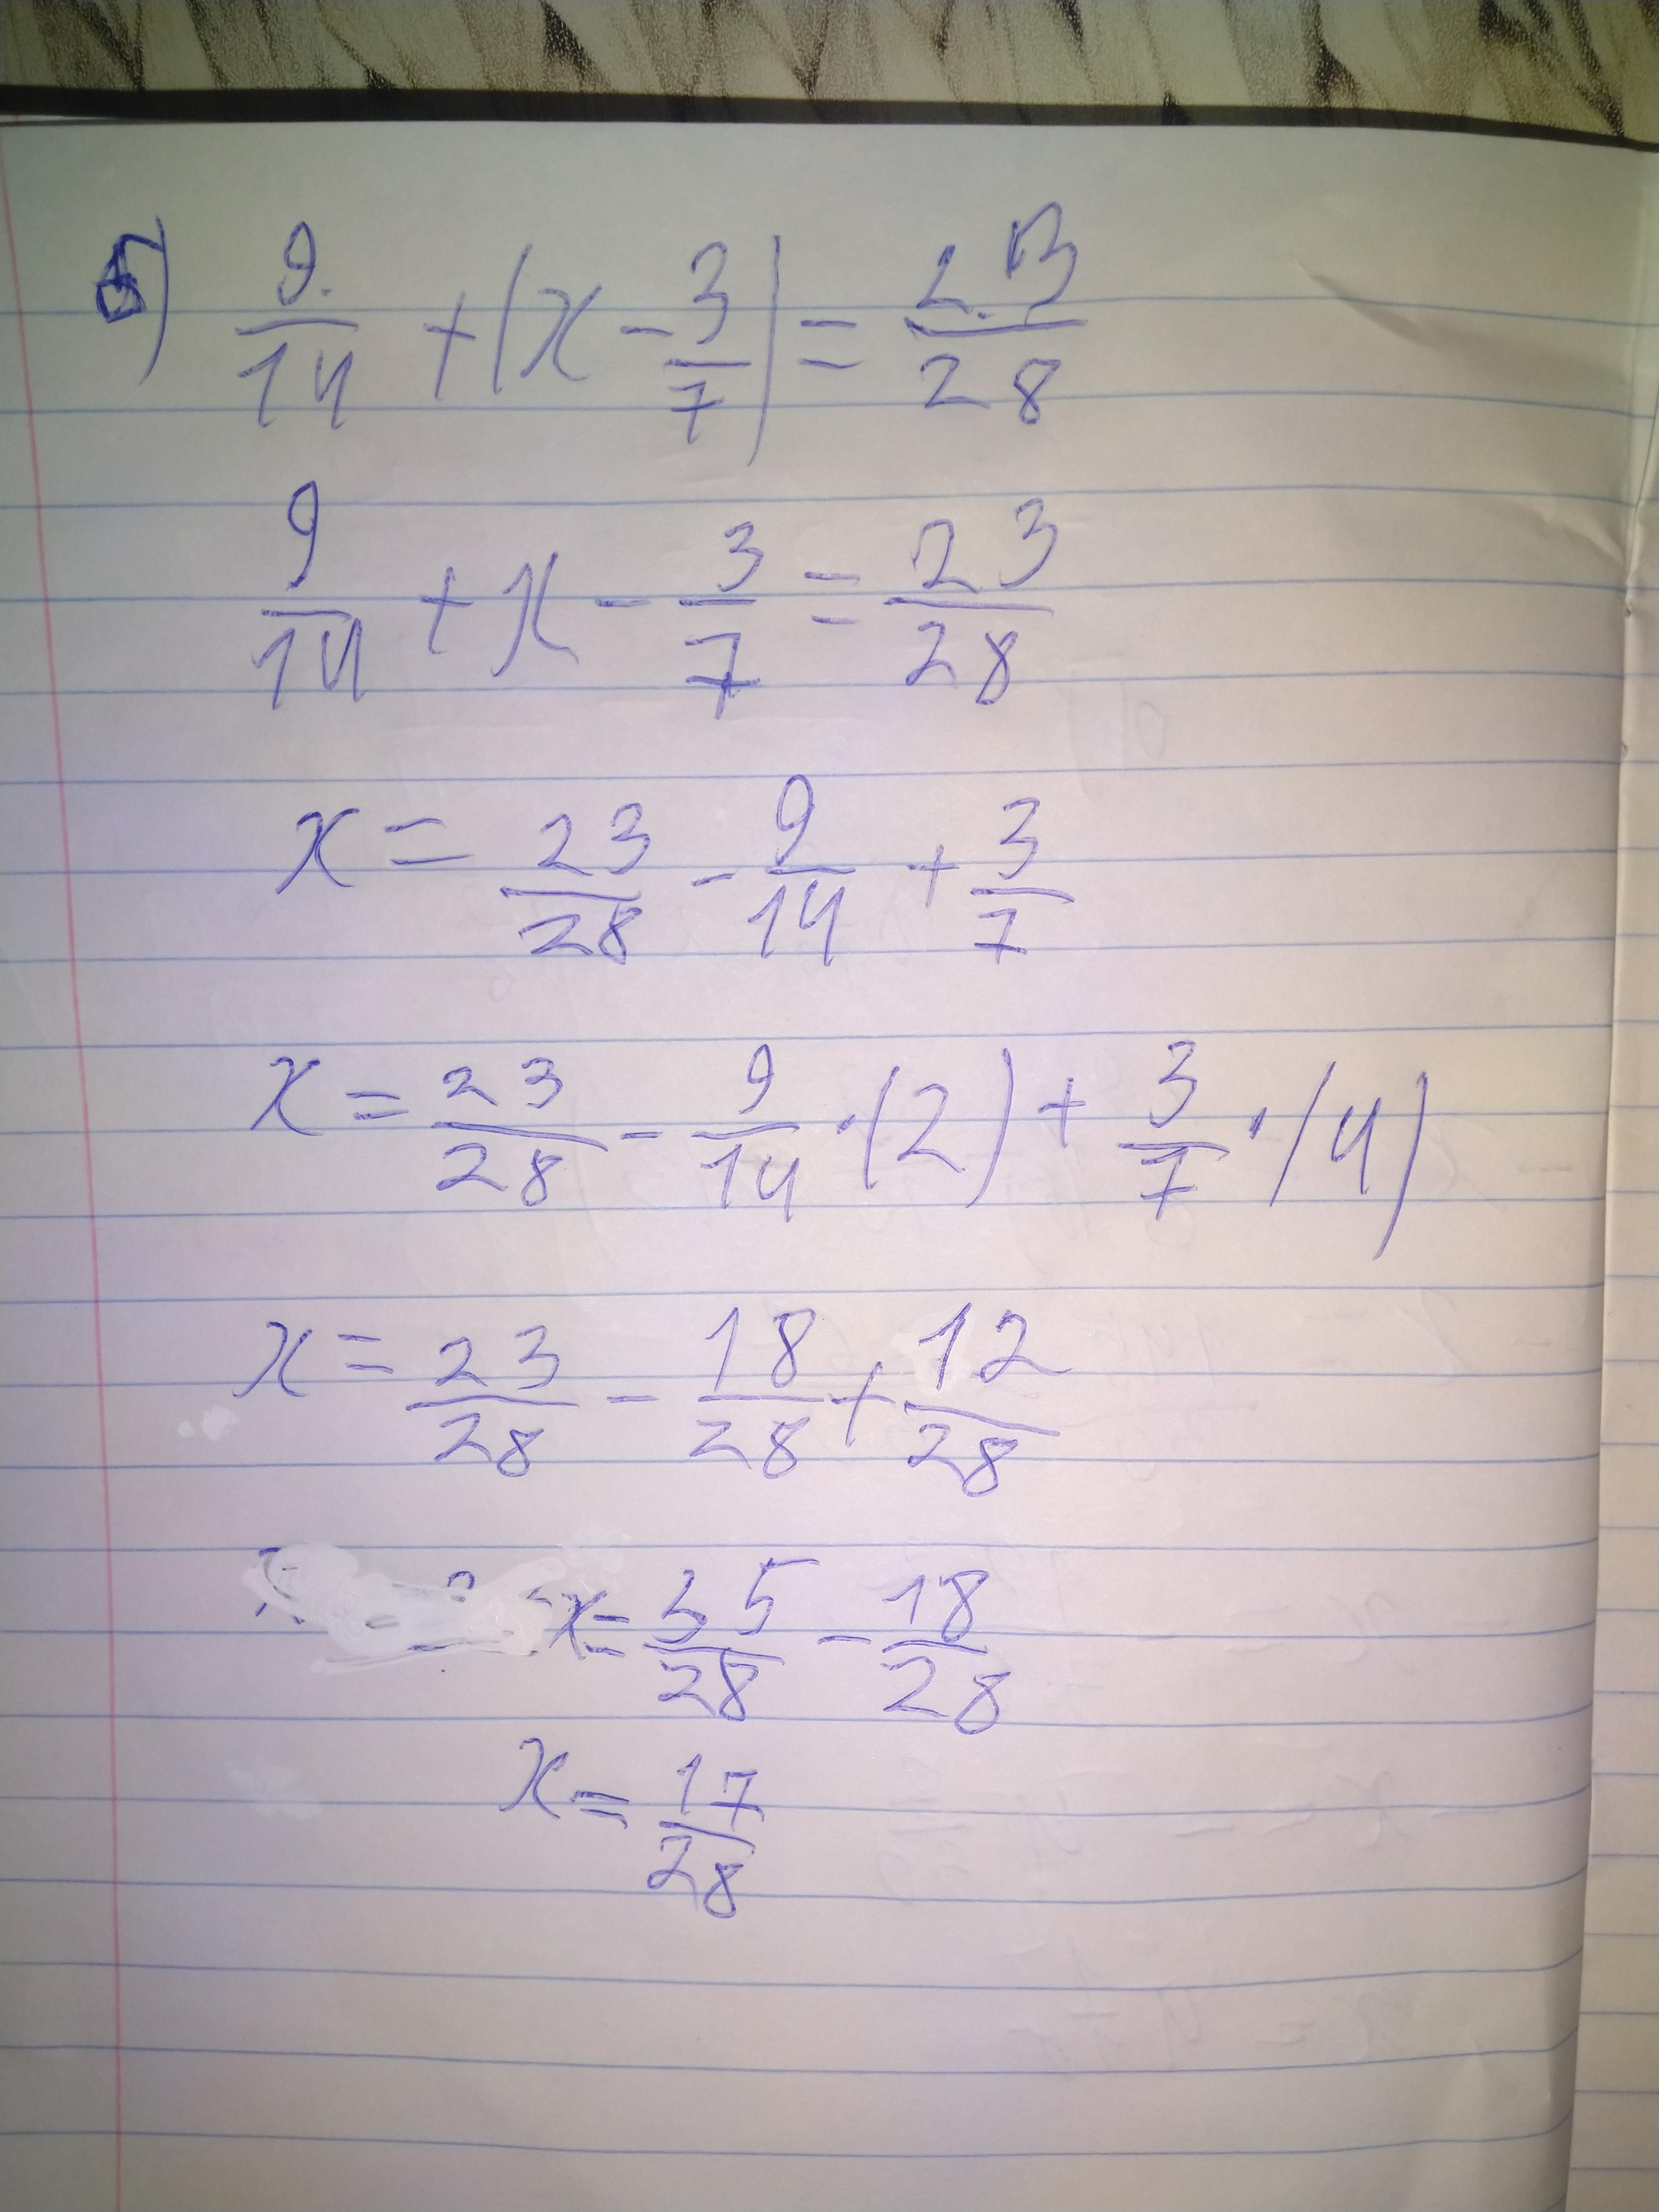 б) 9/14 + (x - 3/7) = 23/28
9/14 + x - 3/7 = 23/28
x = 23/28 - 9/14 + 3/7
x = 23/28 - 9/14 · (2) + 3/7 · (4)
x = 23/28 - 18/28 + 12/28
x = 35/28 - 18/28
x = 17/28